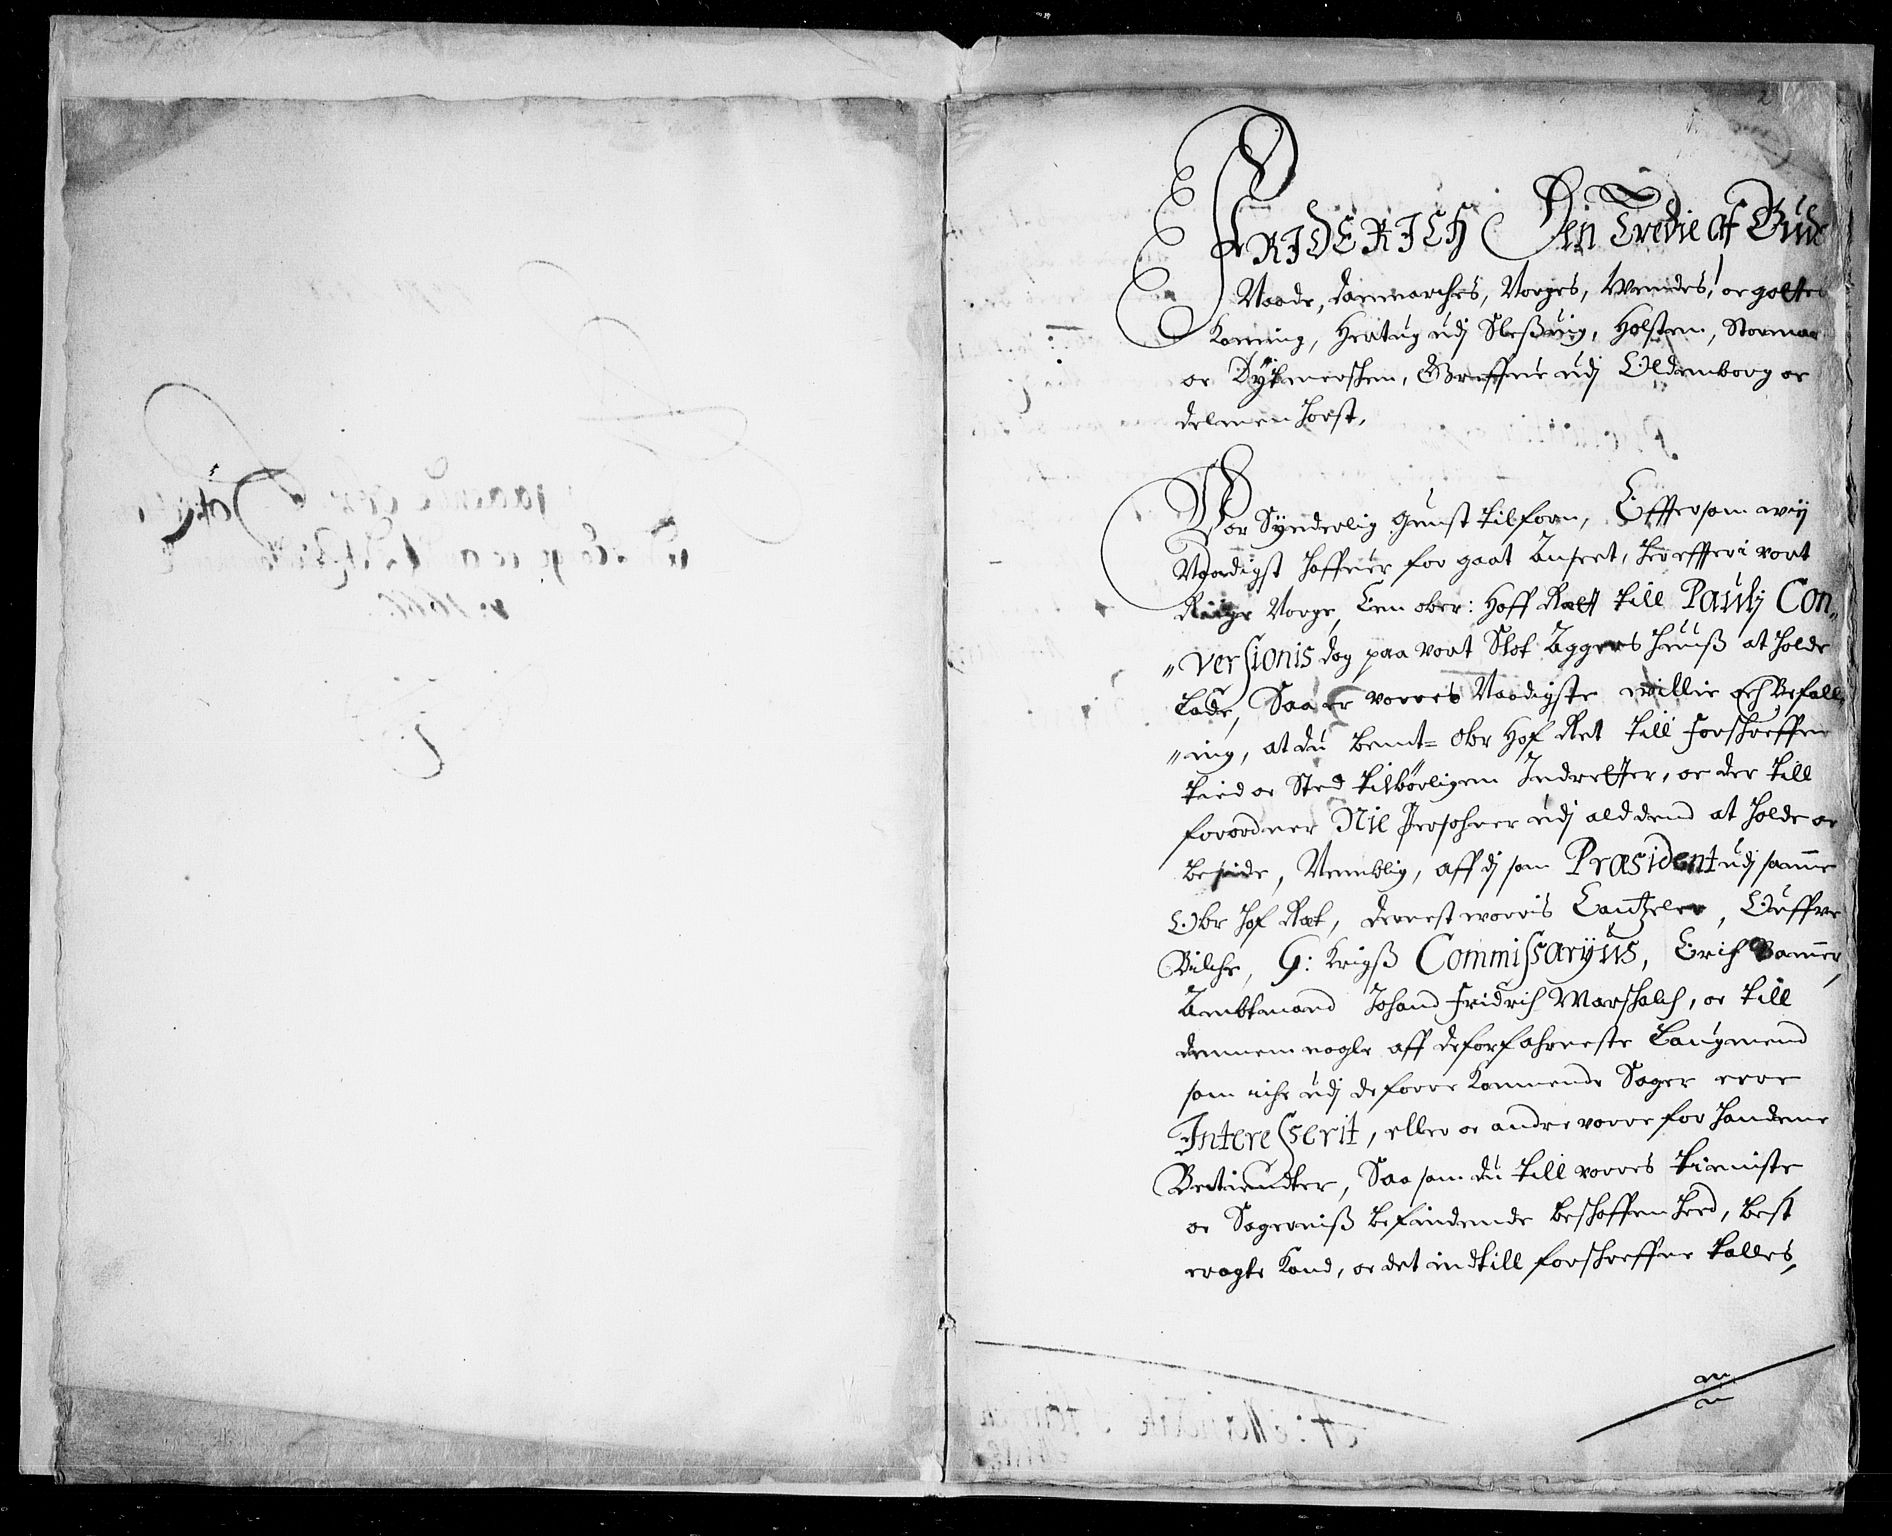 2
FRIDERICH Den Tredie af Guds
Naade, Danmarckes, Norges, Wendes, oc gottes
Konning, Hertug udj Sleßuiig, Holsten, Stormar
oc Dytmerschen, Greffue udj Oldenborg oc
delmenhorst,
Vor Synderlig gunst tilforn, Efftersom wij
Naadigst haffuer for gaat Anseet, hereffter i vort
Riige Norge, Een ober: Hoff Rætt till Pauli Con„
„versionis dag paa vort Slot Aggershuuß at holde
Lade, Saa er vorres Naadigste willie och Befall„
„ing, at du bemt= Obr Hof Ret till forschreffne
tied oc Sted tilbørligen Indretter, oc der till
forordner Nie Persohner udj alddend at holde oc
beside, Nemblig, aff dj som Præsident udj samme
Obr Hof Ret, dernest worris Cantzeler, Ouffve
Bilche, G: Krigß Commissaryus, Erich Banner,
Ambtmand Johand Fridrich Marschalch, oc till
dennem nogle aff deforfahrneste Laugmend
som iche udj de forre Kommende Sager erre
Interesserit, eller oc andre vorre for handene
Betiendter, Saa som du till vorres tieniste
oc Sagerniß befindende beschaffenhed, best
eragte Kand, oc det indtill forschreffne talles,